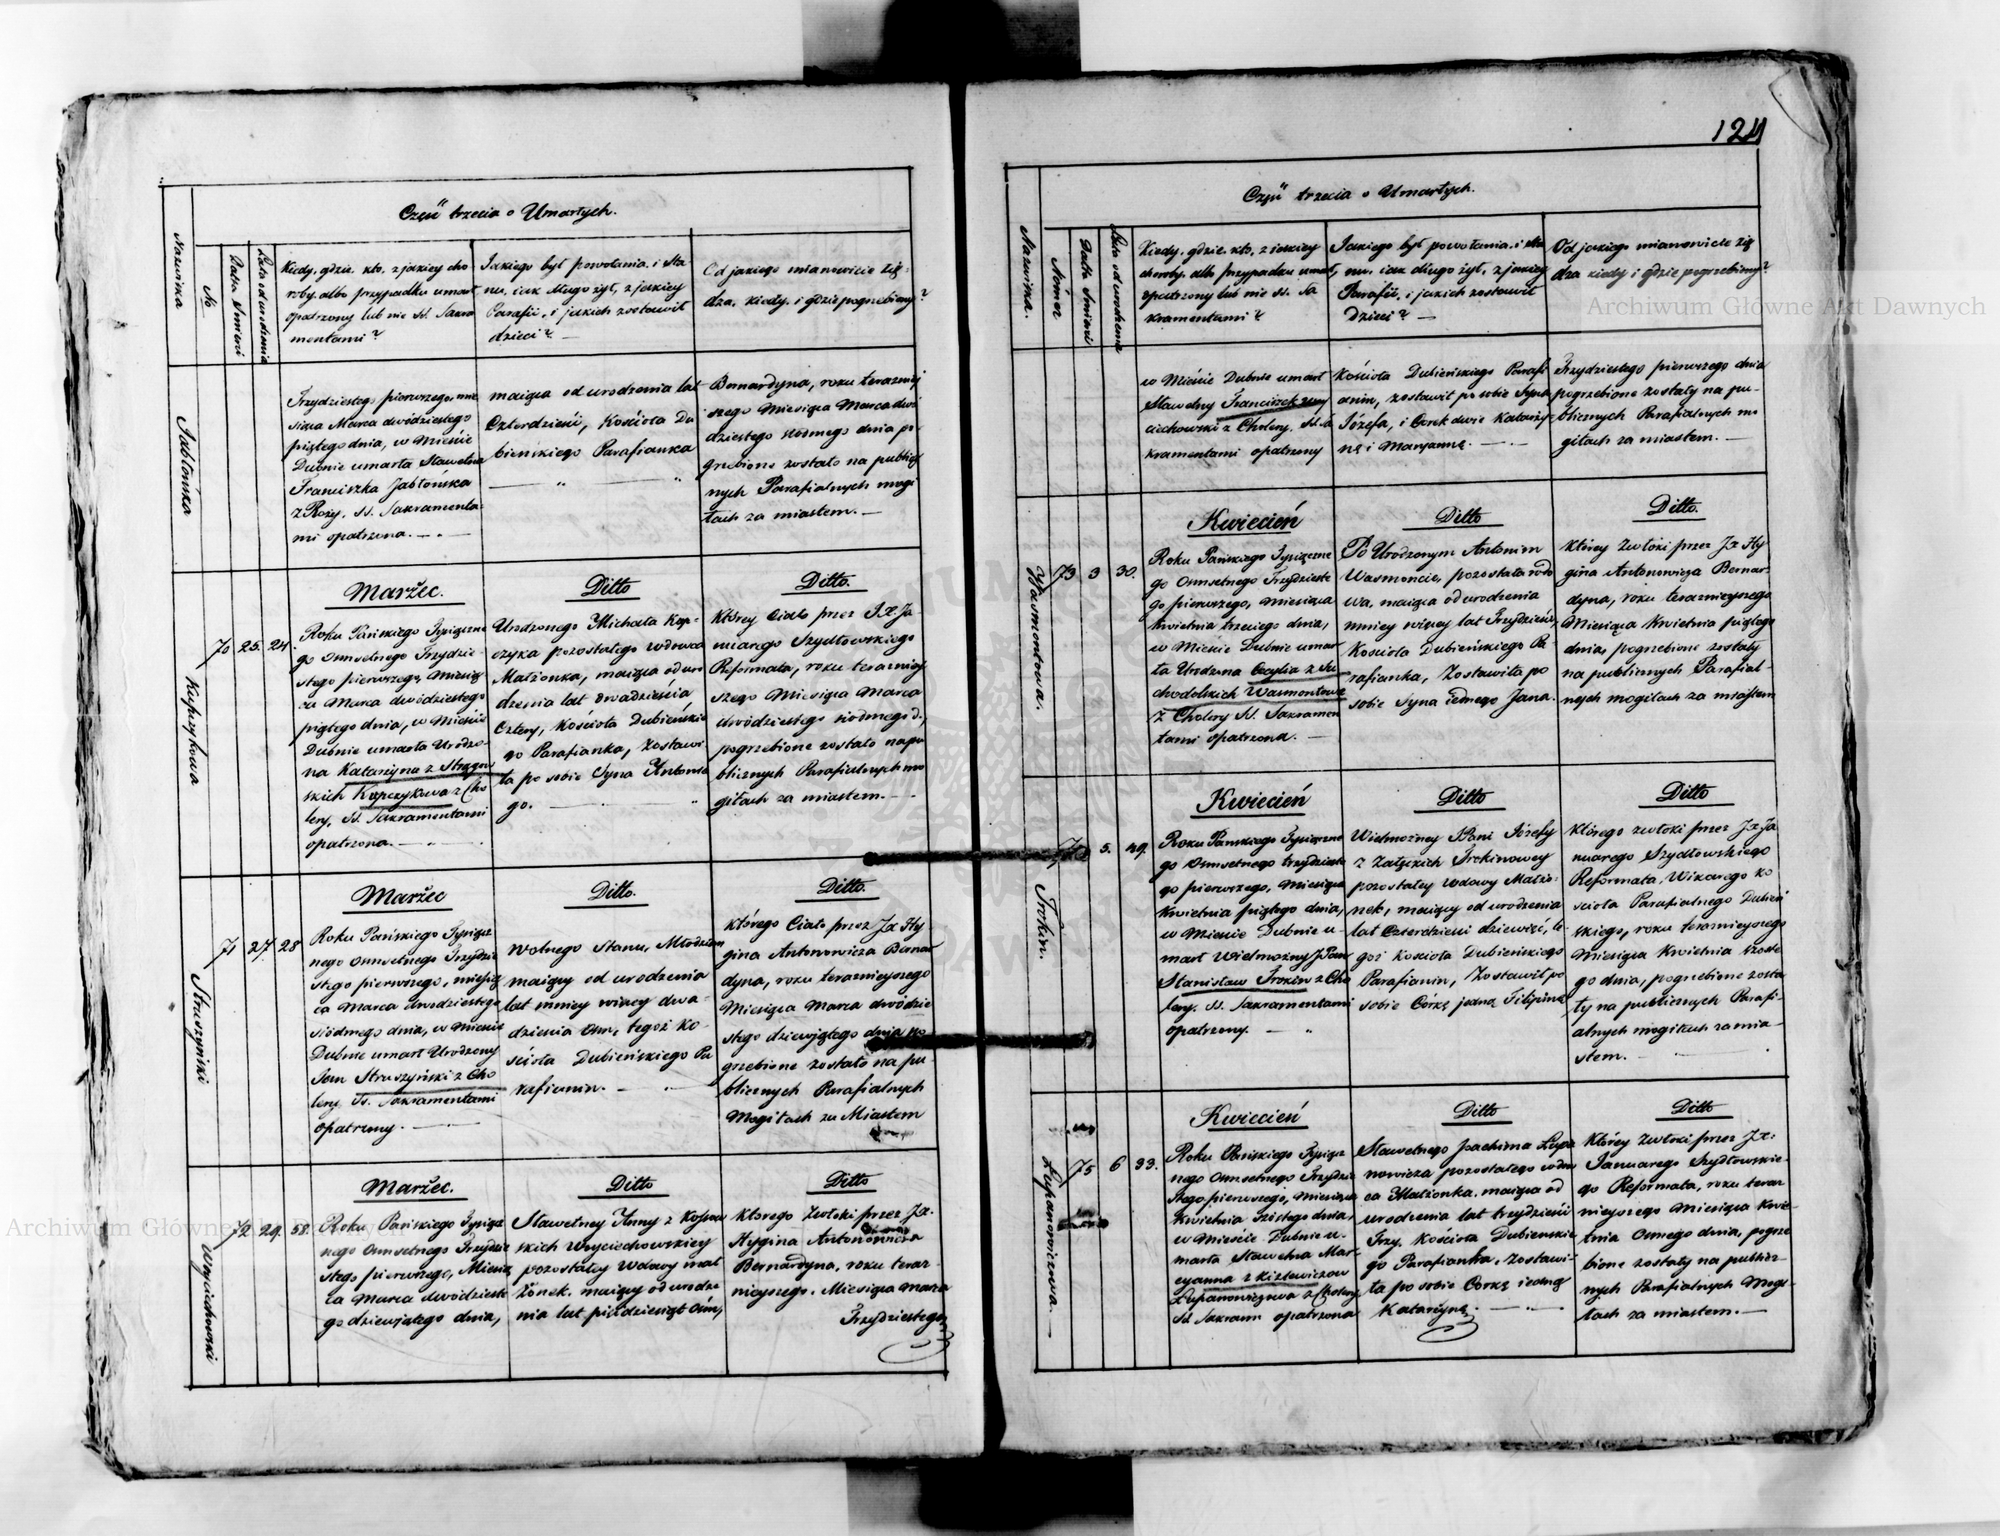 Część trzecia o Umarłych.
Nazwiska
No
Data Śmierci
Lata od urodzenia
Kiedy, gdzie, kto, z jakiey cho
roby, albo przypadku umarł
opatrzony lub nie SS. Sakra
mentami?
Jakiego był powołania i Sta
nu, iak długo żył, z jakiey
Parafii, i jakich zostawił
dzieci? —
Od jakiego mianowicie Xię-
dza, kiedy, i gdzie pogrzebiony?
Jabłońska
Trzydziestego pierwszego, mie
siąca Marca dwódziestego
piątego dnia, w Mieście
Dubnie umarła Sławetna
Franciszka Jabłońska
z Roży, SS. Sakramenta
mi opatrzona. —
maiąca od urodzenia lat
Czterdzieści, Kościoła Du
bieńskiego Parafianka
Bernardyna, roku terazniey
szego Miesiąca Marca dwó
dziestego siódmego dnia po
grzebione zostało na publicz
nych Parafialnych mogi
łach za miastem. —
Kupczykowa
70
25.
24.
Marzec.
Roku Pańskiego Tysiączne
go Ośmsetnego Trzydzie
stego pierwszego, Miesią
ca Marca dwódziestego
piątego dnia, w Mieście
Dubnie umarła Urodzo
na Katarzyna z
skich Kupczykowa z Cho
lery, SS. Sakramentami
opatrzona. —
Ditto
Urodzonego Michała Kup-
czyka pozostałego wdowca
Małżonka, maiąca od uro
dzenia lat dwadzieścia
Cztery, Kościoła Dubieńskie
go Parafianka, Zostawi
ła po sobie Syna Antonie
go. —
Ditto.
Którey Ciało przez JX. Ja
nuarego Szydłowskiego
Reformata, roku terazniey
szego Miesiąca Marca
dwódziestego siodmego d.,
pogrzebione zostało na pu
blicznych Parafialnych mo
giłach za miastem. —
Struszyński
71
27
28
Marzec
Roku Pańskiego Tysiącz
nego Ośmsetnego Trzydzie
stego pierwszego, miesią
ca Marca dwodziestego
siódmego dnia, w Mieście
Dubnie umarł Urodzony
Jan Struszyński z Cho
lery, SS. Sakramentami
opatrzony. —
Ditto.
Wolnego Stanu, Młodzian
maiący od urodzenia
lat mniey więcey dwa-
dzieścia ośm, tegoż Ko-
ścioła Dubieńskiego Pa
rafianin. —
Ditto.
Którego Ciało przez JX Hy
gina Antonowicza Bernar
dyna, roku teraznieyszego
Miesiąca Marca dwódzie
stego dziewiątego dnia po
grzebione zostało na pu
blicznych Parafialnych
Mogiłach za Miastem
Woyciechowski
72
29.
58.
Marzec.
Roku Pańskiego Tysiącz
nego Ośmsetnego Trzydzie
stego pierwszego, Miesią
ca Marca dwódzieste
go dziewiątego dnia,
Ditto
Sławetney Anny z Kossow
skich Woyciechowskiey
pozostałey Wdowy mał
żonek, maiący od urodze
nia lat pięćdziesiąt ośm,
Ditto
Którego Zwłoki przez JX.
Hygina Antonowicza
Bernardyna, roku teraz-
nieyszego, Miesiąca Marca
Trzydziestego
124
Część trzecia o Umarłych.
Nazwiska.
Númer
Data Śmierci
Lata od urodzenia
Kiedy, gdzie, kto, z iakiey
choroby, albo przypadku umarł,
opatrzony lub nie SS. Sa
kramentami?
Jakiego był powołania i Sta
nu, iak długo żył, z jakiey
Parafii, i jakich zostawił
Dzieci? —
Od jakiego mianowicie Xię
dza kiedy i gdzie pogrzebiony?
w Mieście Dubnie umarł
Sławetny Franciszek Woy
ciechowski z Cholery, SS. Sa
kramentami opatrzony
Kościoła Dubieńskiego Parafi
anin, zostawił po sobie Syna
Józefa, i Corek dwie Katarzy-
nę i Maryannę. —
Trzydziestego pierwszego dnia
pogrzebione zostały na pu-
blicznych Parafialnych mo
giłach za miastem. —
Wasmontowa.
73
3
30.
Kwiecień
Roku Pańskiego Tysiączne
go Ośmsetnego Trzydzieste
go pierwszego, Miesiąca
Kwietnia trzeciego dnia,
w Mieście Dubnie umar
ła Urodzona Cecylia z Su
chodolskich Wasmontowa
z Cholery SS. Sakramen
tami opatrzona. —
Ditto
Po Urodzonym Antonim
Wasmoncie, pozostała wdo
wa, maiąca od urodzenia
mniey więcey lat Trzydzieści,
Kościoła Dubieńskiego Pa
rafianka, Zostawiła po
sobie Syna iednego Jana.
Ditto.
Którey Zwłoki przez JX Hy
gina Antonowicza Bernar-
dyna, roku teraznieyszego
Miesiąca Kwietnia piątego
dnia, pogrzebione zostały
na publicznych Parafial-
nych mogiłach za miastem
Trokin.
74
5.
49.
Kwiecień
Roku Pańskiego Tysiączne
go Ośmsetnego trzydzieste
go pierwszego, Miesiąca
Kwietnia piątego dnia,
w Mieście Dubnie u-
marł Wielmożny JPan
Stanisław Trokin z Cho
lery, SS. Sakramentami
opatrzony. —
Ditto
Wielmożney JPani Józefy
z Załęzkich Trokinowey
pozostałey wdowy Małżo-
nek, maiący od urodzenia
lat Czterdzieści dziewięć, te
goż Kościoła Dubieńskiego
Parafianin, Zostawił po
sobie Córkę jedną Filipinę
Ditto
Którego zwłoki przez JX Ja
nuarego Szydłowskiego
Reformata, Wikarego Ko
ścioła Parafialnego Dubień
skiego, roku teraznieyszego
Miesiąca Kwietnia szoste
go dnia, pogrzebione zosta
ły na publicznych Parafi-
alnych mogiłach za mia-
stem. —
Łupanowiczowa.
75
6
33.
Kwiecień
Roku Pańskiego Tysiącz
nego Ośmsetnego Trzydzie
stego pierwszego, Miesiąca
Kwietnia szóstego dnia,
w Mieście Dubnie u-
marła Sławetna Mar
cyanna z Kizlewiczow
Łupanowiczowa z Cholery,
SS. Sakram opatrzona
Ditto
Sławetnego Joachima Łupa
nowicza pozostałego wdow
ca Małżonka, maiąca od
urodzenia lat trzydzieści
Trzy, Kościoła Dubieńskie
go Parafianka, zostawi-
ła po sobie Córkę iedną
Katarzynę. —
Ditto
Którey Zwłoki przez JX:
Januarego Szydłowskie-
go Reformata, roku teraz-
nieyszego Miesiąca Kwie-
tnia ósmego dnia, pogrze
bione zostały na publicz-
nych Parafialnych Mogi-
łach za miastem. —
Archiwum Główne Akt Dawnych
Archiwum Główne Akt Dawnych